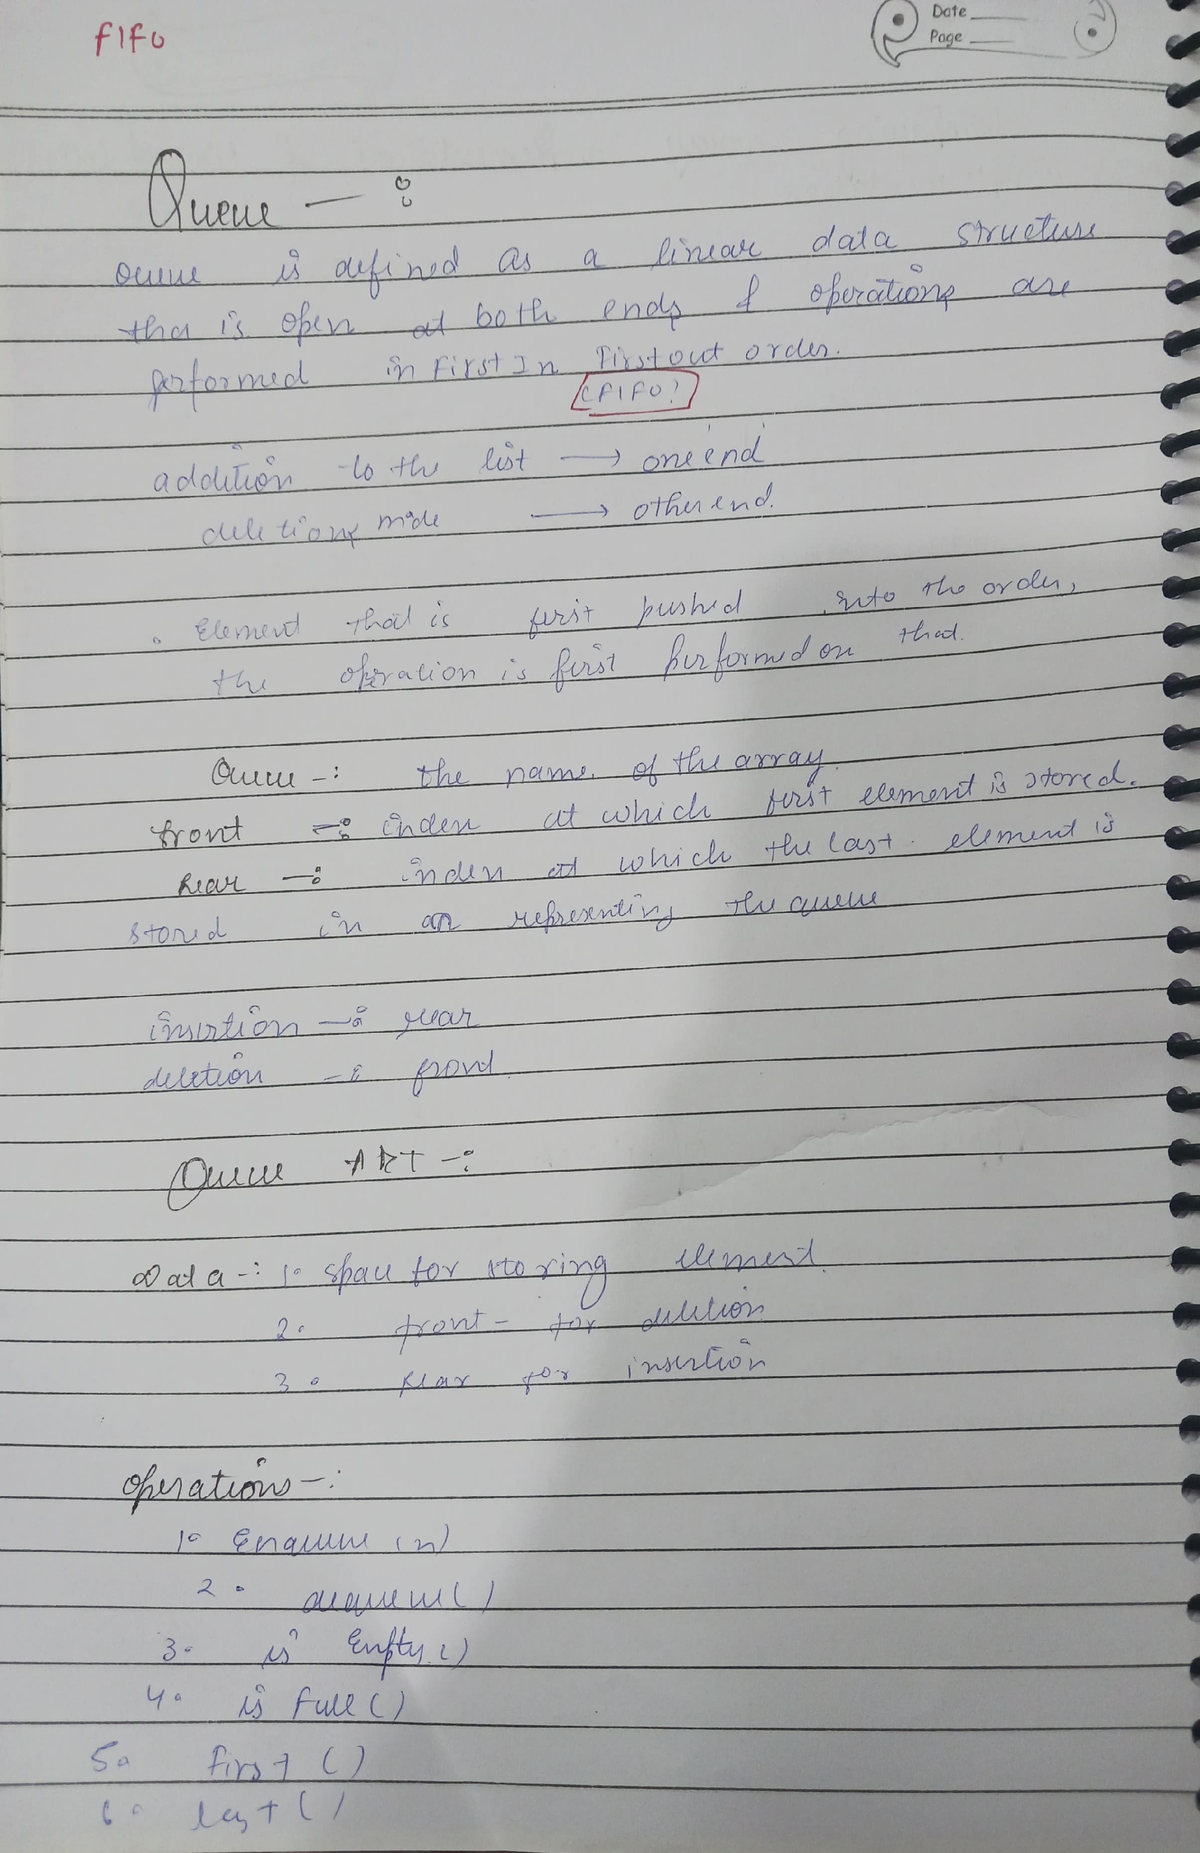 FIFO
Date
Page
Queue - :
Queue is defined as a linear data structure
tha is open at both ends & operations are
performed in First In First out order.
(FIFO)
addition to the list → one end
deletions made → other end.
. Element that is first pushed into the order,
the operation is first performed on that.
Queue -: the name of the array.
front -: index at which first element is stored.
Rear -: index at which the last element is
stored in an representing the queue
insertion -: rear
deletion -: front
Queue ADT -:
Data -: 1. space for storing element.
2. front - for deletion
3. Rear for insertion
operations -:
1. Enqueue (x)
2. dequeue ( )
3. is Empty ()
4. is Full ( )
5. first ( )
6. last ( )